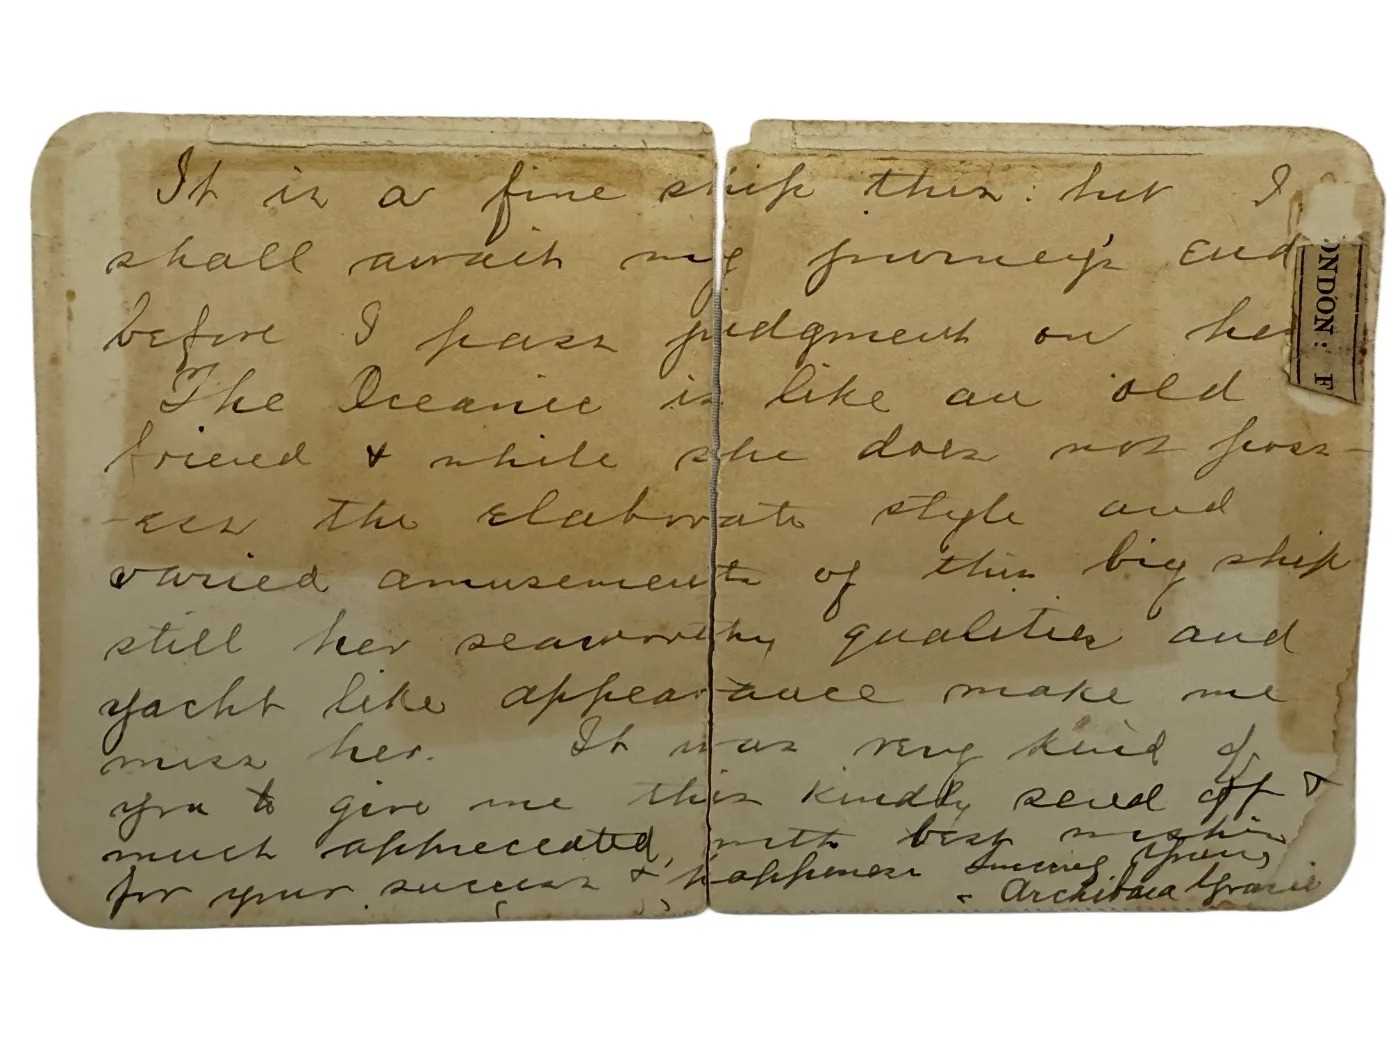 It is a fine ship this: but I
shall await my journey's end
before I pass judgment on her
The Oceanic is like an old
friend & while she does not poss-
-ess the elaborate style and
varied amusements of this big ship
still her seaworthy qualities and
yacht like appearance make me
miss her. It was very kind of
you to give me this kindly send off &
much appreciated, with best wishes
for your success & happiness Sincerely Yours,
Archibald Gracie
ONDON: F